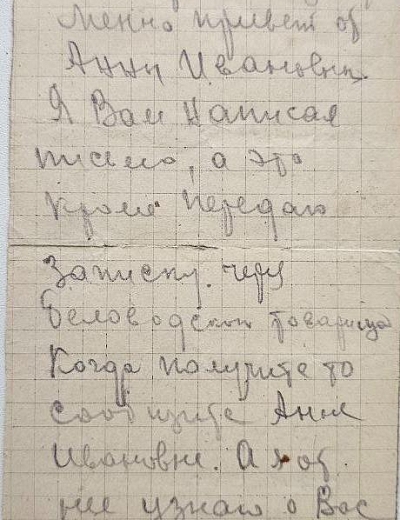 менно привет от
Анны Ивановны
Я Вам написал
письмо, а это
кроме передаю
Записку. через
Беловодских товарища
Когда получите то
сообщите Анне
Ивановне. А я от
нее узнаю о Вас